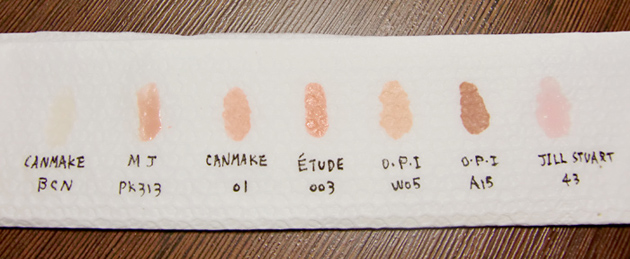 CANMAKE
BCN
MJ
PK313
CANMAKE
01
ÉTUDE
003
O.P.I
W05
O.P.I
A15
JILL STUART
43